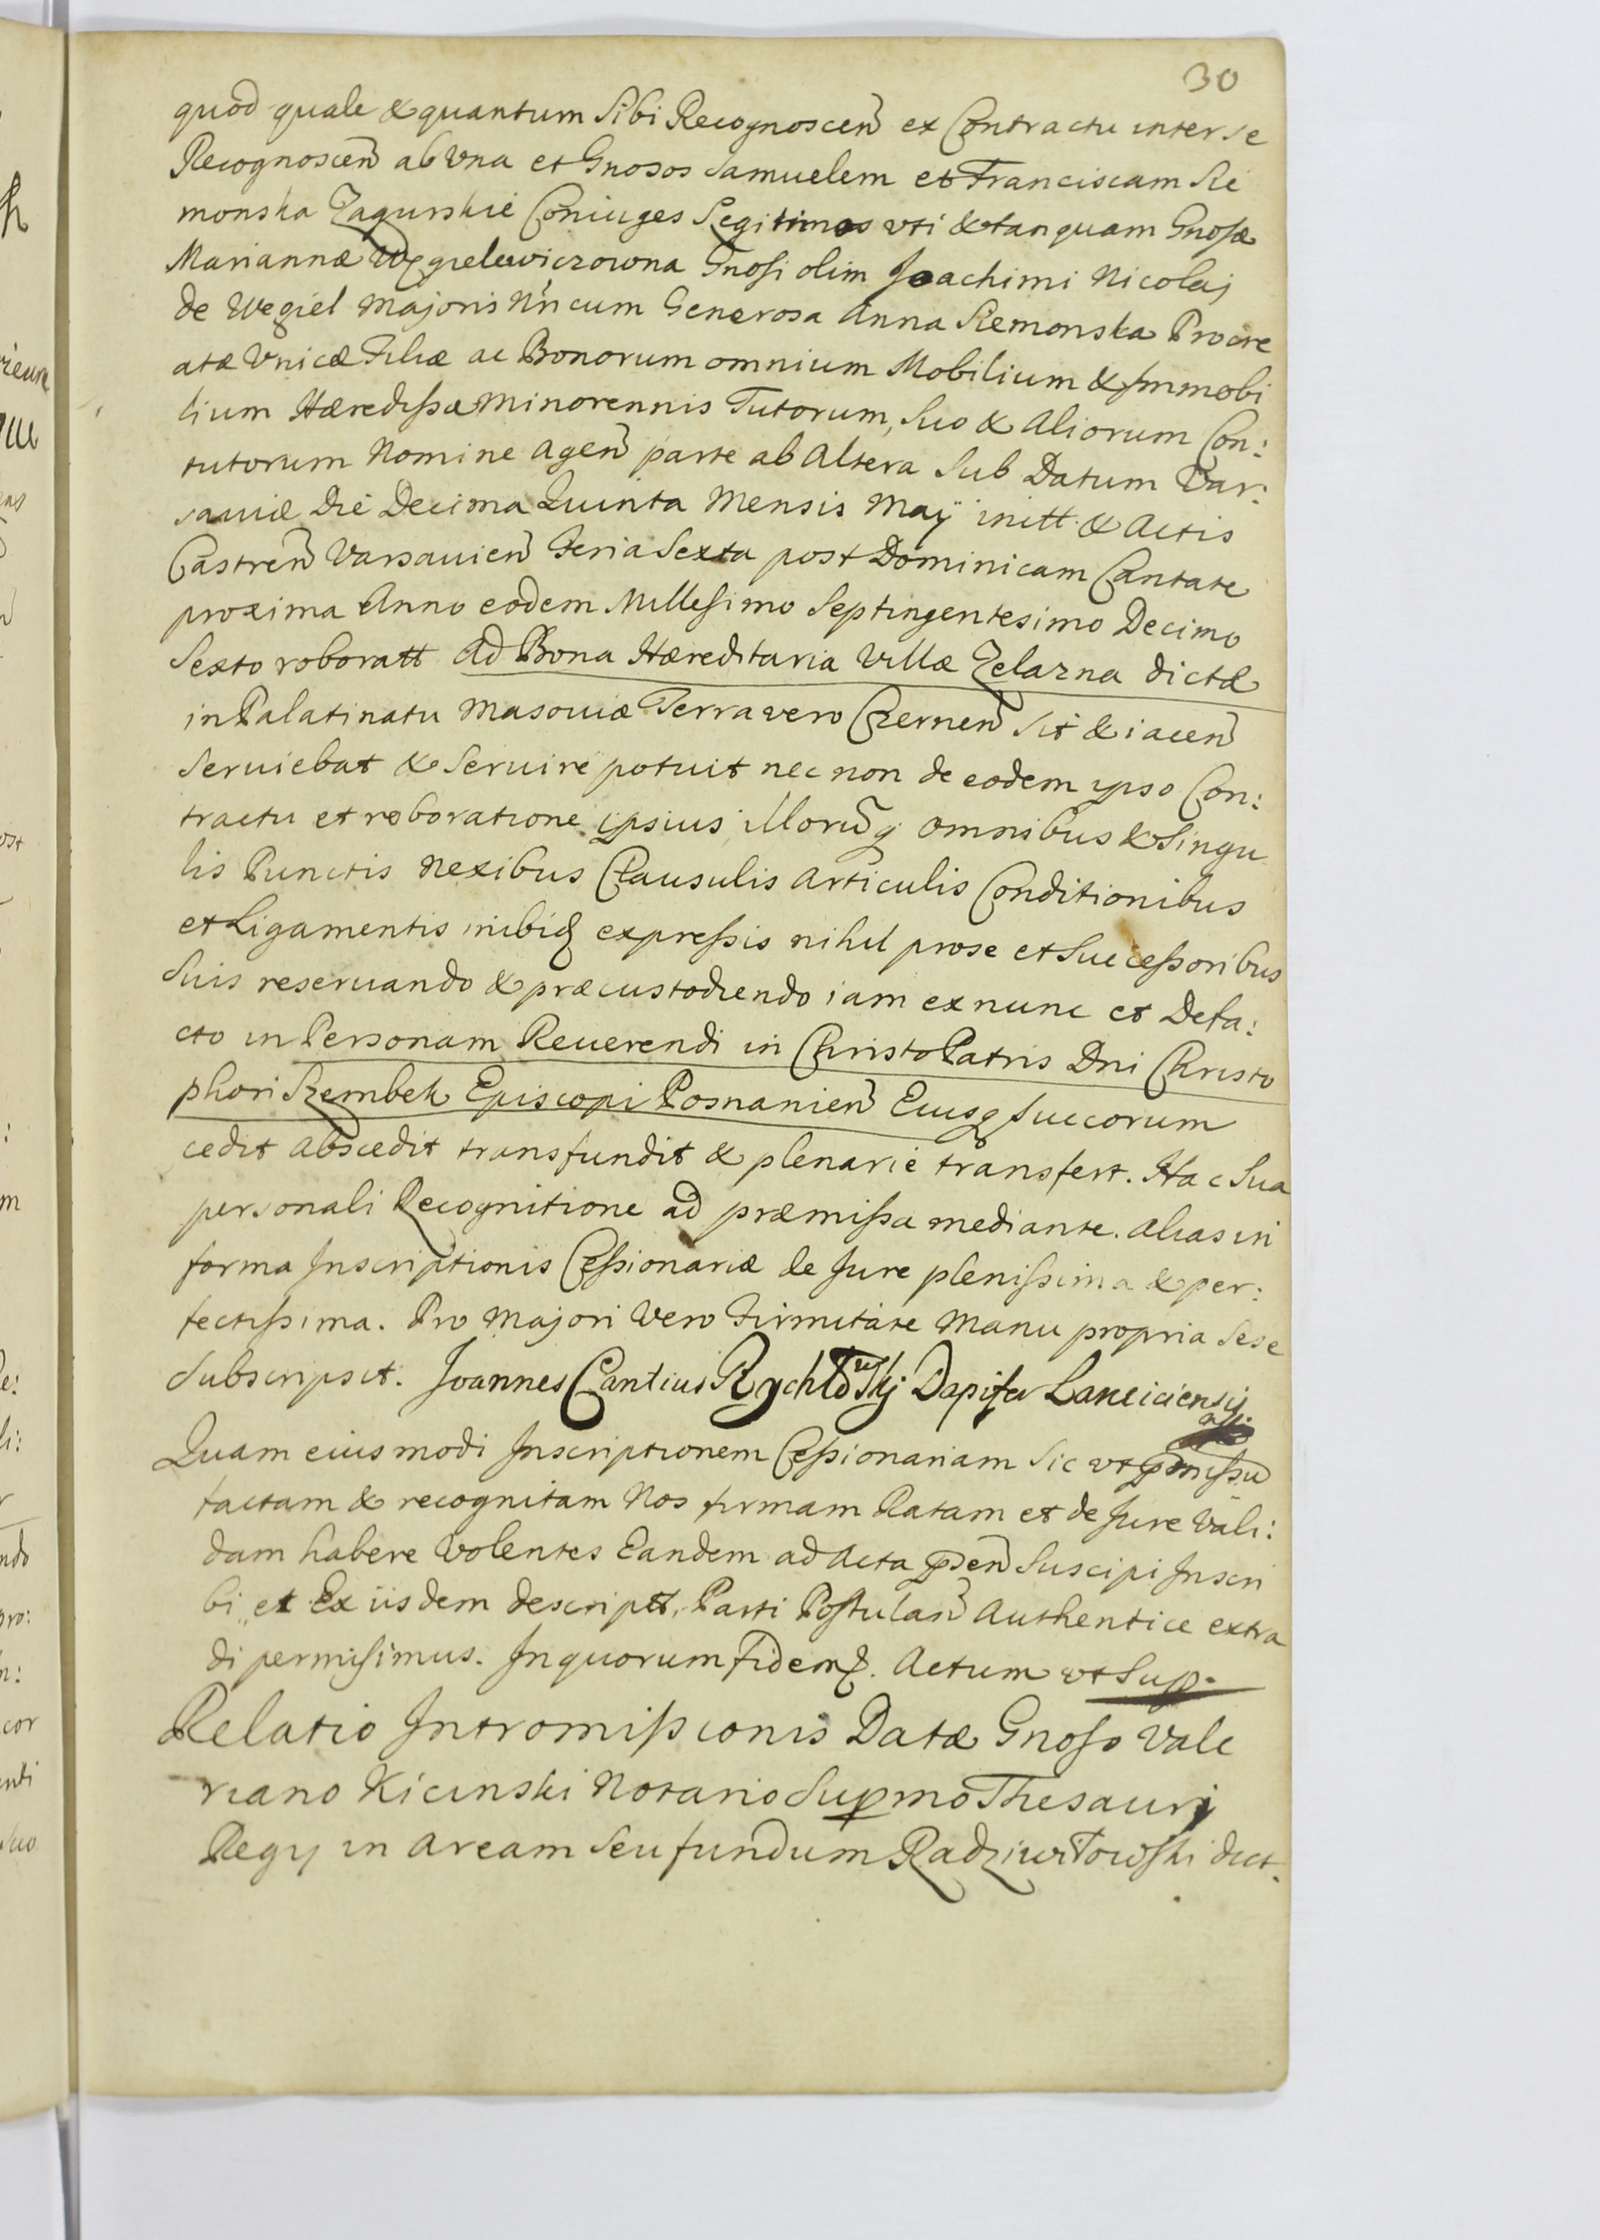 30
quod quale & quantum Sibi Recognoscen̄ ex Contractu inter se
Recognoscen̄ ab Vna et Gnosos Samuelem et Franciscam Sie
monska Zagurskie Coniuges Legitimos vti & tanquam Gnosæ
Mariannæ Węgielewiczowna Gnosi olim Joachimi Nicolaj
de Wegiel Majoris Nn cum Generosa Anna Siemonska Procre
atæ Vnicæ Filiæ ac Bonorum omnium Mobilium & Immobi
lium Hæredissæ Minorennis Tutorum, Suo & Aliorum Con:
tutorum Nomine Agen̄ parte ab Altera Sub Datum Var:
sauiæ Die Decima Quinta Mensis Maÿ initt & Actis
Castren̄ Varsauien̄ Feria Sexta post Dominicam Cantate
proxima Anno eodem Millesimo Septingentesimo Decimo
Sexto roboratt Ad Bona Hæreditaria Villæ Zelazna dictæ
in Palatinatu Masouiæ Terra vero Czernen̄ Sit & iacen̄
Seruiebat & Seruire potuit nec non de eodem ypso Con:
tractu et roboratione ipsius illorūq omnibus & Singu
lis Punctis Nexibus Clausulis Articulis Conditionibus
et Ligamentis inibiq expressis nihil pro se et Successoribus
Suis reseruando & præcustodiendo iam ex nunc et Defa:
cto in Personam Reuerendi in Christo Patris Dni Christo
phori Szembek Episcopi Posnanien̄ Eiusq succorum
cedit abscedit transfundit & plenarie transfert. Hac Sua
personali Recognitione ad præmissa mediante. Alias in
forma Inscriptionis Cessionariæ de Jure plenissima & per:
fectissima. Pro Majori Vero Firmitate Manu propria Sese
Subscripsit. Joannes Cantius Rychłowskj Dapifer Lanciciensis
Quam eiusmodi Inscriptionem Cessionariam Sic vt præmissū
factam & recognitam Nos firmam Ratam et de Jure Vali:
dam habere Volentes Eandem ad Acta præsen̄ Suscipi Inscri
bi et Ex iisdem descriptt, Parti Postulan̄ Authentice extra
di permisimus. In quorum Fidemq. Actum vt Sup.
Relatio Intromissionis Datæ Gnoso Vale
riano Kicinski Notario Supmo Thesaurj
Regij in Aream Seu fundum Radziwiłowski dict.